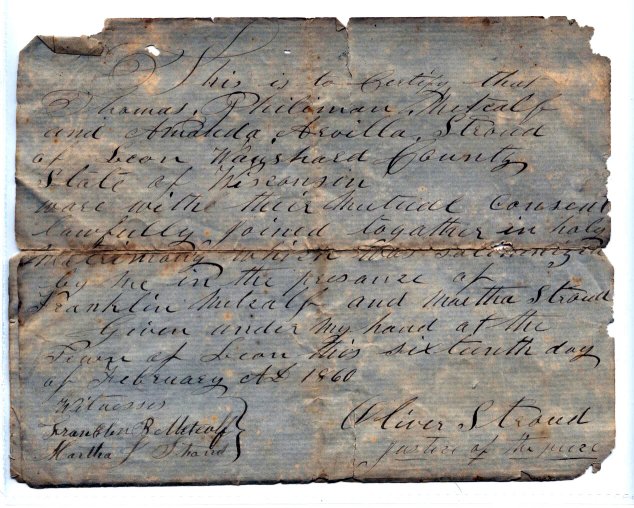 This is to Certify that
Thomas, Philiman, Metcalf
and Amanda, Arvilla, Stroud
of Leon Waushard County
State of Wisconsin
ware withe their Mutual Consent
lawfully joined togather in holy
Matrimony which was solemnized
by me in the presance of
Franklin Metcalf and Martha Stroud
Given under my hand at the
Town of Leon this sixteenth day
of February AD 1860
Witnesses
Franklin B Metcalf
Martha J Stroud
Oliver Stroud
justice of the peace